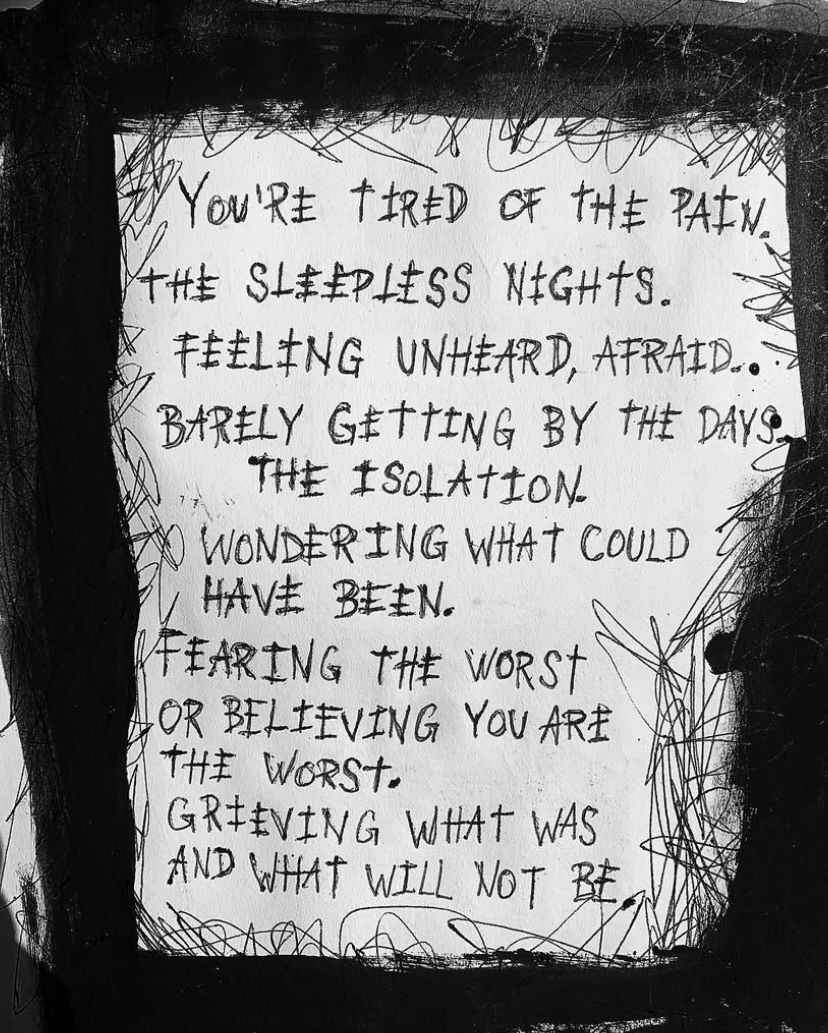 YOU'RE TIRED OF THE PAIN.
THE SLEEPLESS NIGHTS.
FEELING UNHEARD, AFRAID..
BARELY GETTING BY THE DAYS.
THE ISOLATION.
WONDERING WHAT COULD
HAVE BEEN.
FEARING THE WORST
OR BELIEVING YOU ARE
THE WORST.
GRIEVING WHAT WAS
AND WHAT WILL NOT BE.